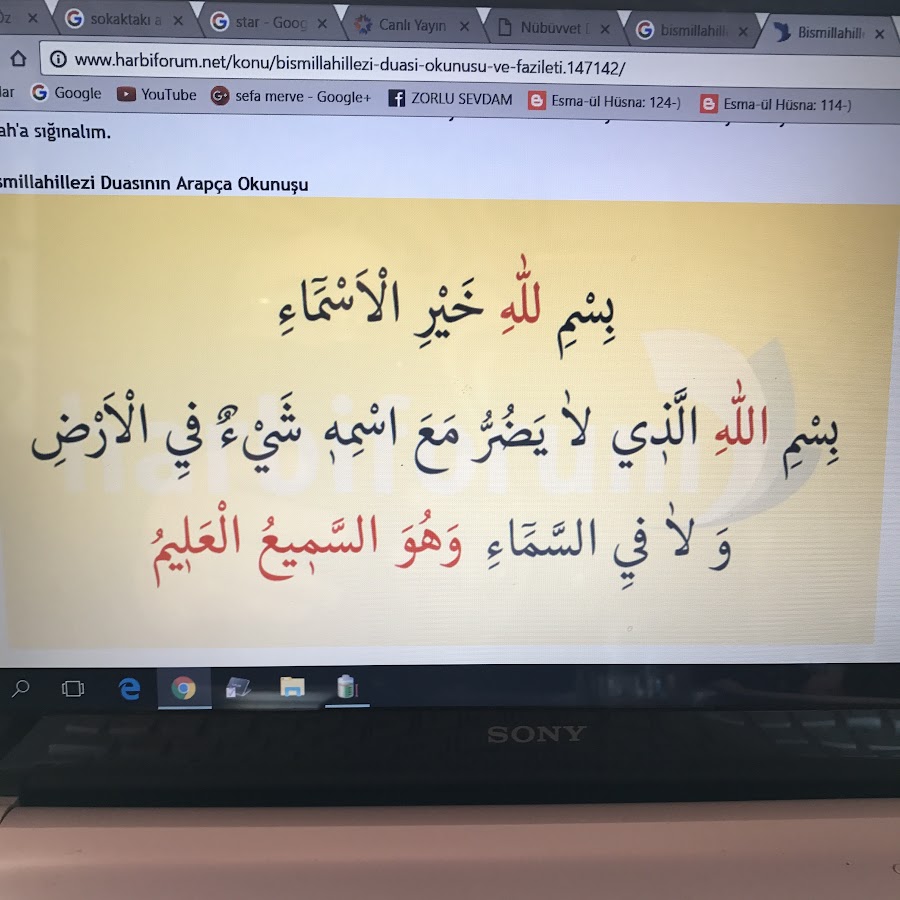 Öz
sokaktakı a
star - Goog
Canlı Yayın
Nübüvvet
bismillahill
Bismillahill
www.harbiforum.net/konu/bismillahillezi-duasi-okunusu-ve-fazileti.147142/
lar Google YouTube sefa merve - Google+ ZORLU SEVDAM Esma-ül Hüsna: 124-) Esma-ül Hüsna: 114-)
ah'a sığınalım.
smillahillezi Duasının Arapça Okunuşu
بِسْمِ للّٰهِ خَيْرِ الْاَسْمَٓاءِ
بِسْمِ اللّٰهِ الَّذ۪ي لَا يَضُرُّ مَعَ اسْمِه۪ شَيْءٌ فِي الْاَرْضِ
وَ لَا فِي السَّمَٓاءِ وَهُوَ السَّم۪يعُ الْعَل۪يمُ
harbiforum
SONY